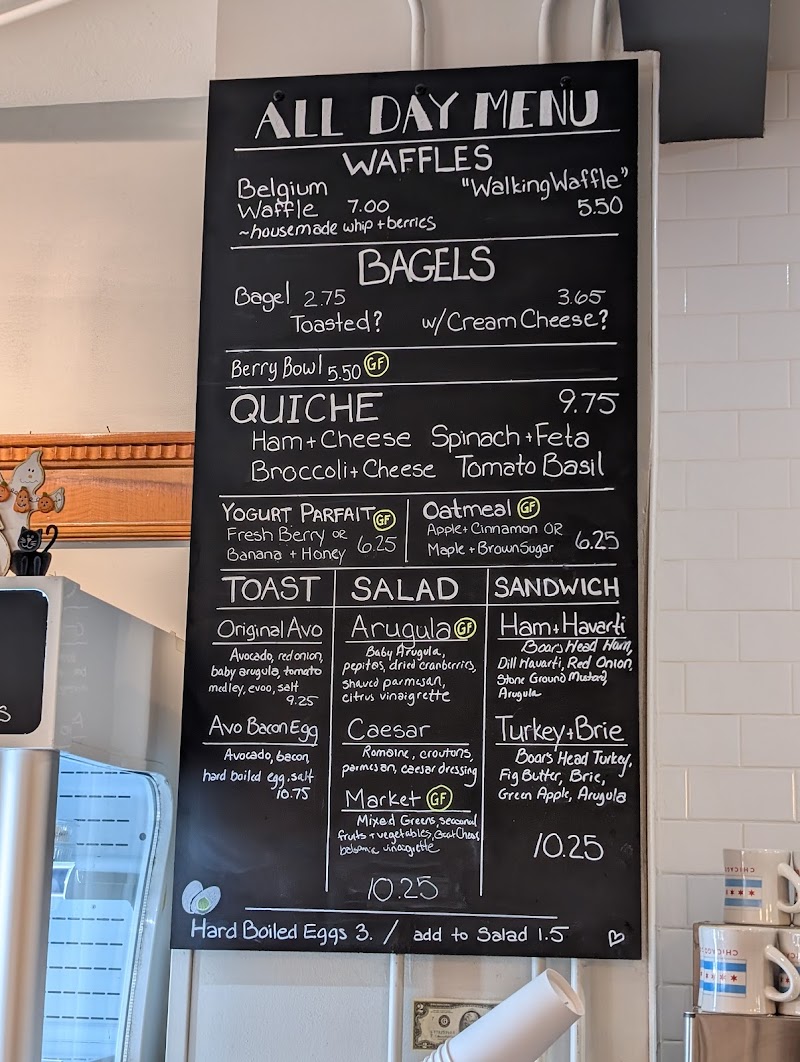 ALL DAY MENU
WAFFLES
Belgium Waffle 7.00
~housemade whip + berries
"Walking Waffle"
5.50
BAGELS
Bagel 2.75
Toasted?
3.65
w/ Cream Cheese?
Berry Bowl 5.50 GF
QUICHE 9.75
Ham + Cheese Spinach + Feta
Broccoli + Cheese Tomato Basil
YOGURT PARFAIT GF
Fresh Berry OR
Banana + Honey 6.25
Oatmeal GF
Apple + Cinnamon OR
Maple + Brown Sugar 6.25
TOAST
Original Avo
Avocado, red onion,
baby arugula, tomato
medley, evoo, salt
9.25
Avo Bacon Egg
Avocado, bacon,
hard boiled egg, salt
10.75
SALAD
Arugula GF
Baby Arugula,
pepitas, dried cranberries,
shaved parmesan,
citrus vinaigrette
Caesar
Romaine, croutons,
parmesan, caesar dressing
Market GF
Mixed Greens, seasonal
fruits + vegetables, Goat Cheese,
balsamic vinaigrette
10.25
SANDWICH
Ham + Havarti
Boars Head Ham,
Dill Havarti, Red Onion,
Stone Ground Mustard,
Arugula
Turkey + Brie
Boars Head Turkey,
Fig Butter, Brie,
Green Apple, Arugula
10.25
Hard Boiled Eggs 3. / add to Salad 1.5
S
CHICAGO
CHICAGO
2